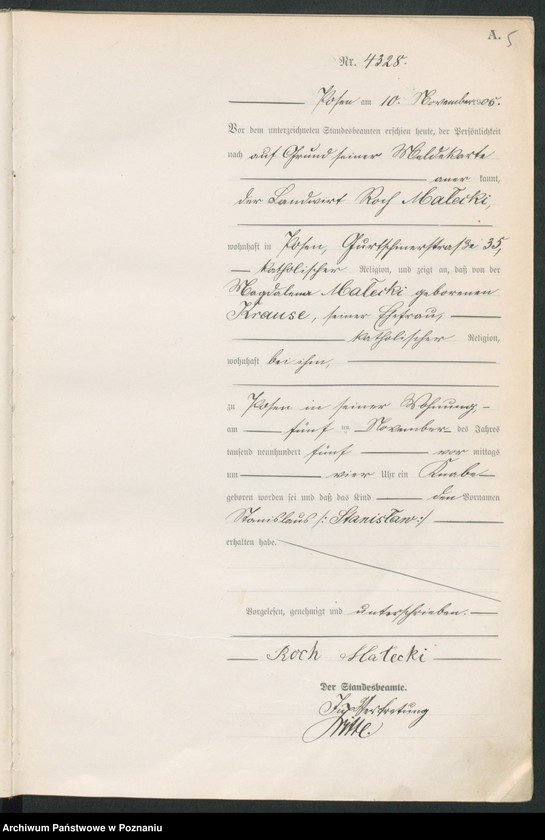 A. 5
Nr. 4328.
Posen am 10. November 1905.
Vor dem unterzeichneten Standesbeamten erschien heute, der Persönlichkeit
nach auf Grund seiner Meldekarte
aner kannt,
der Landwirt Roch Małecki,
wohnhaft in Posen, Gurtschinerstraße 35,
katholischer Religion, und zeigt an, daß von der
Magdalena Małecki geborenen
Krause, seiner Ehefrau,
katholischer Religion,
wohnhaft bei ihm,
zu Posen in seiner Wohnung,
am fünften November des Jahres
tausend neunhundert fünf vor mittags
um vier Uhr ein Knabe
geboren worden sei und daß das Kind den Vornamen
Stanislaus /: Stanisław :/
erhalten habe.
Vorgelesen, genehmigt und unterschrieben.
Roch Małecki
Der Standesbeamte.
In Vertretung
Archiwum Państwowe w Poznaniu